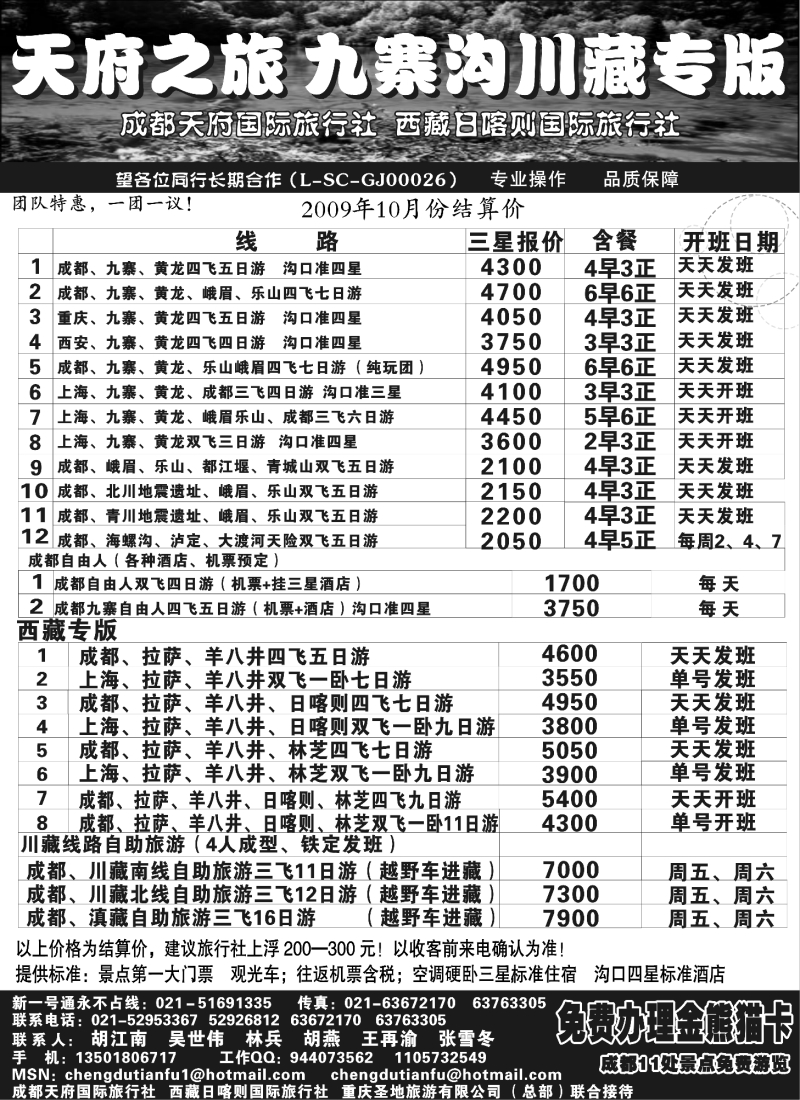 天府之旅 九寨沟川藏专版
成都天府国际旅行社 西藏日喀则国际旅行社
望各位同行长期合作（L-SC-GJ00026） 专业操作 品质保障
团队特惠，一团一议！
2009年10月份结算价
线 路 三星报价 含餐 开班日期
1 成都、九寨、黄龙四飞五日游 沟口准四星 4300 4早3正 天天发班
2 成都、九寨、黄龙、峨眉、乐山四飞七日游 4700 6早6正 天天发班
3 重庆、九寨、黄龙四飞五日游 沟口准四星 4050 4早3正 天天发班
4 西安、九寨、黄龙四飞四日游 沟口准四星 3750 3早3正 天天发班
5 成都、九寨、黄龙、乐山峨眉四飞七日游（纯玩团） 4950 6早6正 天天发班
6 上海、九寨、黄龙、成都三飞四日游 沟口准三星 4100 3早3正 天天开班
7 上海、九寨、黄龙、峨眉乐山、成都三飞六日游 4450 5早6正 天天开班
8 上海、九寨、黄龙双飞三日游 沟口准四星 3600 2早3正 天天开班
9 成都、峨眉、乐山、都江堰、青城山双飞五日游 2100 4早3正 天天发班
10 成都、北川地震遗址、峨眉、乐山双飞五日游 2150 4早3正 天天发班
11 成都、青川地震遗址、峨眉、乐山双飞五日游 2200 4早3正 天天发班
12 成都、海螺沟、泸定、大渡河天险双飞五日游 2050 4早5正 每周2、4、7
成都自由人（各种酒店、机票预定）
1 成都自由人双飞四日游（机票+挂三星酒店） 1700 每天
2 成都九寨自由人四飞五日游（机票+酒店）沟口准四星 3750 每天
西藏专版
1 成都、拉萨、羊八井四飞五日游 4600 天天发班
2 上海、拉萨、羊八井双飞一卧七日游 3550 单号发班
3 成都、拉萨、羊八井、日喀则四飞七日游 4950 天天发班
4 上海、拉萨、羊八井、日喀则双飞一卧九日游 3800 单号发班
5 成都、拉萨、羊八井、林芝四飞七日游 5050 天天发班
6 上海、拉萨、羊八井、林芝双飞一卧九日游 3900 单号发班
7 成都、拉萨、羊八井、日喀则、林芝四飞九日游 5400 天天开班
8 成都、拉萨、羊八井、日喀则、林芝双飞一卧11日游 4300 单号开班
川藏线路自助旅游（4人成型、铁定发班）
成都、川藏南线自助旅游三飞11日游（越野车进藏） 7000 周五、周六
成都、川藏北线自助旅游三飞12日游（越野车进藏） 7300 周五、周六
成都、滇藏自助旅游三飞16日游 （越野车进藏） 7900 周五、周六
以上价格为结算价，建议旅行社上浮200—300元！以收客前来电确认为准！
提供标准：景点第一大门票 观光车；往返机票含税；空调硬卧三星标准住宿 沟口四星标准酒店
新一号通永不占线：021-51691335 传真：021-63672170 63763305
联系电话：021-52953367 52926812 63672170 63763305
联系人： 胡江南 吴世伟 林兵 胡燕 王再渝 张雪冬
手 机：13501806717 工作QQ：944073562 1105732549
MSN：chengdutianfu1@hotmail.com chengdutianfu@hotmail.com
成都天府国际旅行社 西藏日喀则国际旅行社 重庆圣地旅游有限公司（总部）联合接待
免费办理金熊猫卡
成都11处景点免费游览